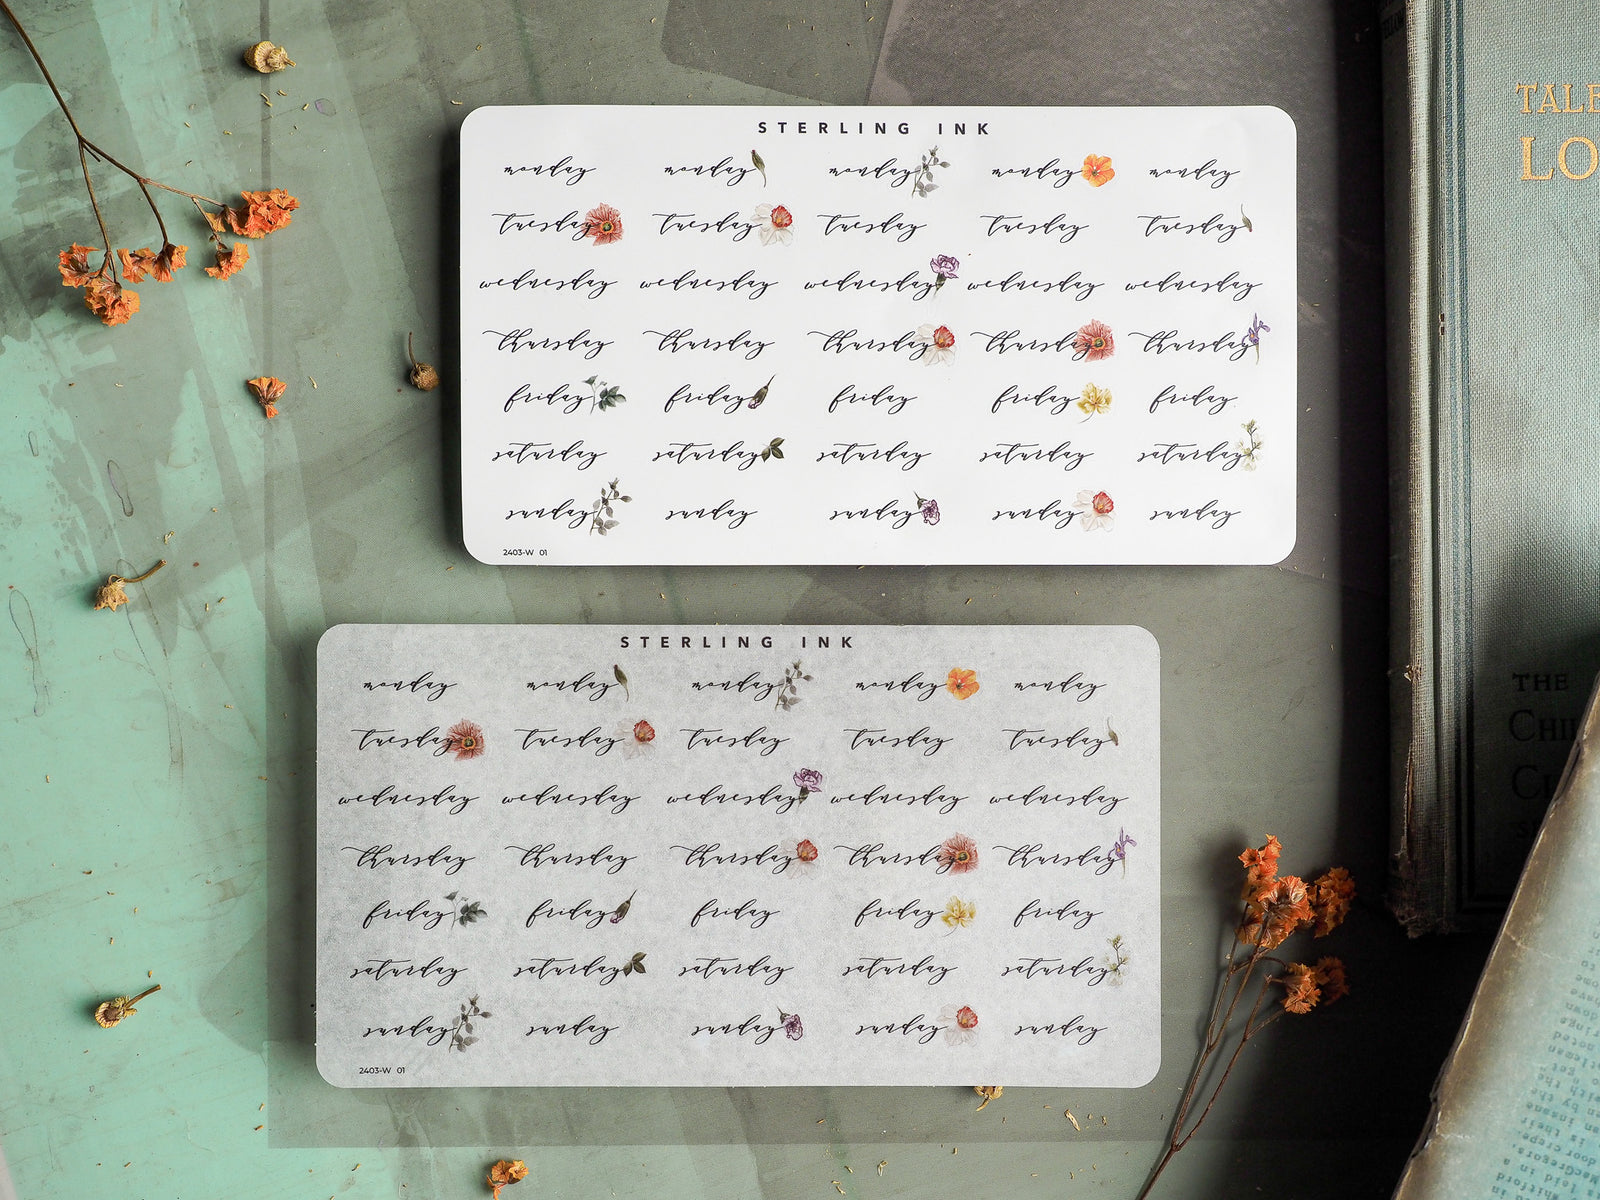 STERLING INK
monday monday monday monday monday
tuesday tuesday tuesday tuesday tuesday
wednesday wednesday wednesday wednesday wednesday
thursday thursday thursday thursday thursday
friday friday friday friday friday
saturday saturday saturday saturday saturday
sunday sunday sunday sunday sunday
2403-W 01
STERLING INK
monday monday monday monday monday
tuesday tuesday tuesday tuesday tuesday
wednesday wednesday wednesday wednesday wednesday
thursday thursday thursday thursday thursday
friday friday friday friday friday
saturday saturday saturday saturday saturday
sunday sunday sunday sunday sunday
2403-W 01
THE